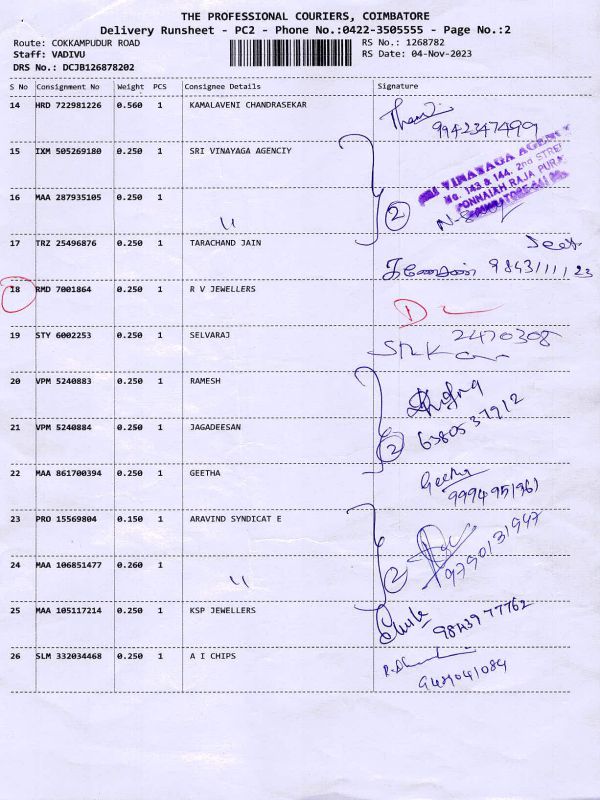 THE PROFESSIONAL COURIERS, COIMBATORE
Delivery Runsheet - PC2 - Phone No.:0422-3505555 - Page No.:2
Route: COKKAMPUDUR ROAD RS No.: 1268782
Staff: VADIVU RS Date: 04-Nov-2023
DRS No.: DCJB126878202
S No Consignment No Weight PCS Consignee Details Signature
14 HRD 722981226 0.560 1 KAMALAVENI CHANDRASEKAR
9942347499
15 IXM 505269180 0.250 1 SRI VINAYAGA AGENCIY
SRI VINAYAGA AGENCY
No. 143 & 144, 2nd STREET
PONNAIAH RAJA PURAM
16 MAA 287935105 0.250 1 〃 2
17 TRZ 25496876 0.250 1 TARACHAND JAIN
18 RMD 7001864 0.250 1 R V JEWELLERS
D
19 STY 6002253 0.250 1 SELVARAJ
2470308
20 VPM 5240883 0.250 1 RAMESH
21 VPM 5240884 0.250 1 JAGADEESAN 2
6380537912
22 MAA 861700394 0.250 1 GEETHA
Geetha
9994951961
23 PRO 15569804 0.150 1 ARAVIND SYNDICAT E
9790131947
24 MAA 106851477 0.260 1 〃 2
25 MAA 105117214 0.250 1 KSP JEWELLERS
9843977762
26 SLM 332034468 0.250 1 A I CHIPS